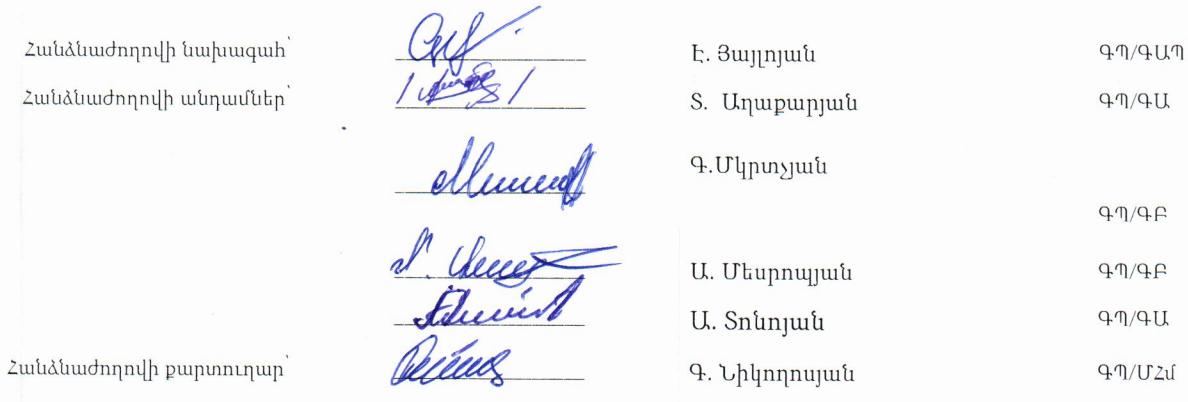 Հանձնաժողովի նախագահ՝ Է. Յայլոյան ԳՊ/ԳԱՊ
Հանձնաժողովի անդամներ՝ Տ. Աղաքարյան ԳՊ/ԳԱ
Գ.Մկրտչյան
ԳՊ/ԳԲ
Ա. Մեսրոպյան ԳՊ/ԳԲ
Ա. Տոնոյան ԳՊ/ԳԱ
Հանձնաժողովի քարտուղար՝ Գ. Նիկողոսյան ԳՊ/ՄՀմ